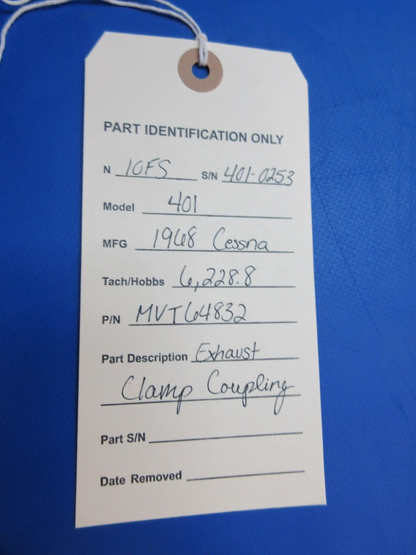 PART IDENTIFICATION ONLY
N 10FS S/N 401-0253
Model 401
MFG 1968 Cessna
Tach/Hobbs 6,228.8
P/N MVT64832
Part Description Exhaust
Clamp Coupling
Part S/N
Date Removed